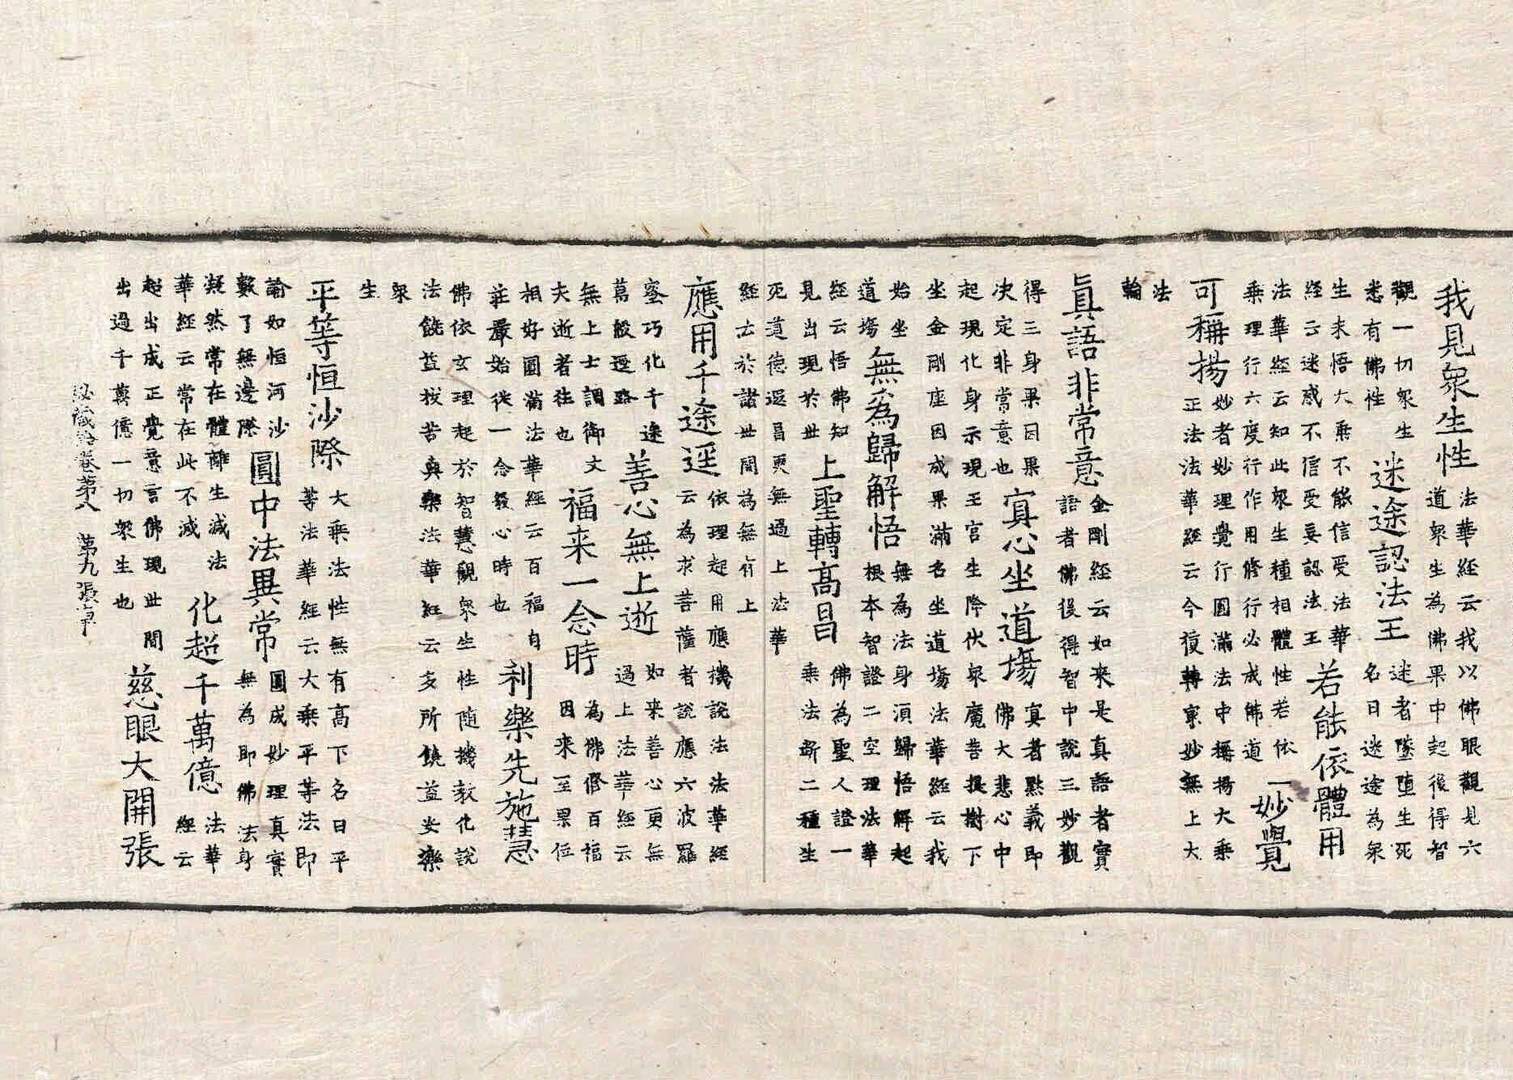 我見衆生性
法華經云我以佛眼觀見六
道衆生為佛果中起後得智
觀一切衆生
悉有佛性
迷途認法王
迷者墜堕生死
名曰迷途為衆
生未悟大乘不能信受法華
經云迷惑不信受妄認法王
若能依體用
法華經云知此衆生種相體性若依
乘理行六度行作用修行必成佛道
妙覺
可稱揚
妙者妙理覺行圓滿法中稱揚大乘
正法法華經云今復轉宗妙無上大
法
輪
眞語非常意
金剛經云如来是真語者實
語者佛後得智中說三妙觀
得三身果因果
决定非常意也
寘心坐道塲
真者㸃義即
佛大悲心中
起現化身示現王宮生降伏衆魔菩提樹下
坐金剛座因成果滿名坐道塲法華經云我
始坐
道塲
無為歸解悟
無為法身須歸悟解起
根本智證二空理法華
經云悟佛知
見出現於世
上聖轉高昌
佛為聖人證一
乘法斷二種生
死道德還昌更無過上法華
經云於諸世間為無有上
應用千途逕
依理起用應機說法法華經
云為求菩薩者說應六波羅
蜜巧化千途
萬般逕路
善心無上逝
如来善心更無
過上法華經云
無上士調御丈
夫逝者往也
福来一念時
為佛修百福
因来至果位
相好圓滿法華經云百福自
莊嚴始從一念發心時也
利樂先施慧
佛依玄理起於智慧觀衆生性隨機教化說
法饒益拔苦與樂法華經云多所饒益安樂
衆
生
平等恒沙際
大乘法性無有高下名曰平
等法華經云大乘平等法即
喻如恒河沙
數了無邊際
圓中法異常
圓成妙理真實
無為即佛法身
凝然常在體離生滅法
華經云常在此不滅
化超千萬億
法華
經云
超出成正覺意言佛現世間
出過千萬億一切衆生也
慈眼大開張
秘藏詮卷第八 第九張